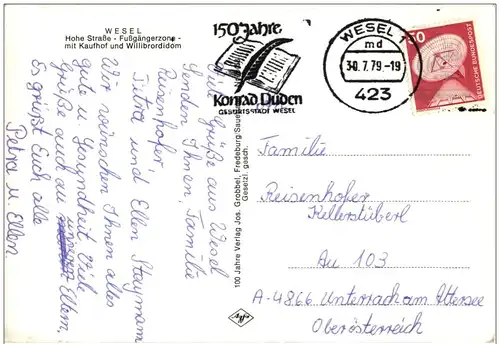 WESEL
Hohe Straße - Fußgängerzone -
mit Kaufhof und Willibrordidom
150 Jahre
Konrad Duden
GEBURTSSTADT WESEL
WESEL 1
md
30.7.79.-19
423
50
DEUTSCHE BUNDESPOST
Viele Grüße aus Wesel
senden Ihnen, Familie
Reisenhofer
Petra und Ellen
Wir wünschen Ihnen alles
gute u. Gesundheit. Viele
Grüße auch an Eltern.
Es grüßt Euch alle
Petra u. Ellen.
100 Jahre Verlag Jos. Grobbel, Fredeburg/Sauerl.
Gesetzl. gesch.
Agfa
Familie
Reisenhofer
Kellerstüberl
Au 103
A-4866 Unterach am Attersee
Oberösterreich